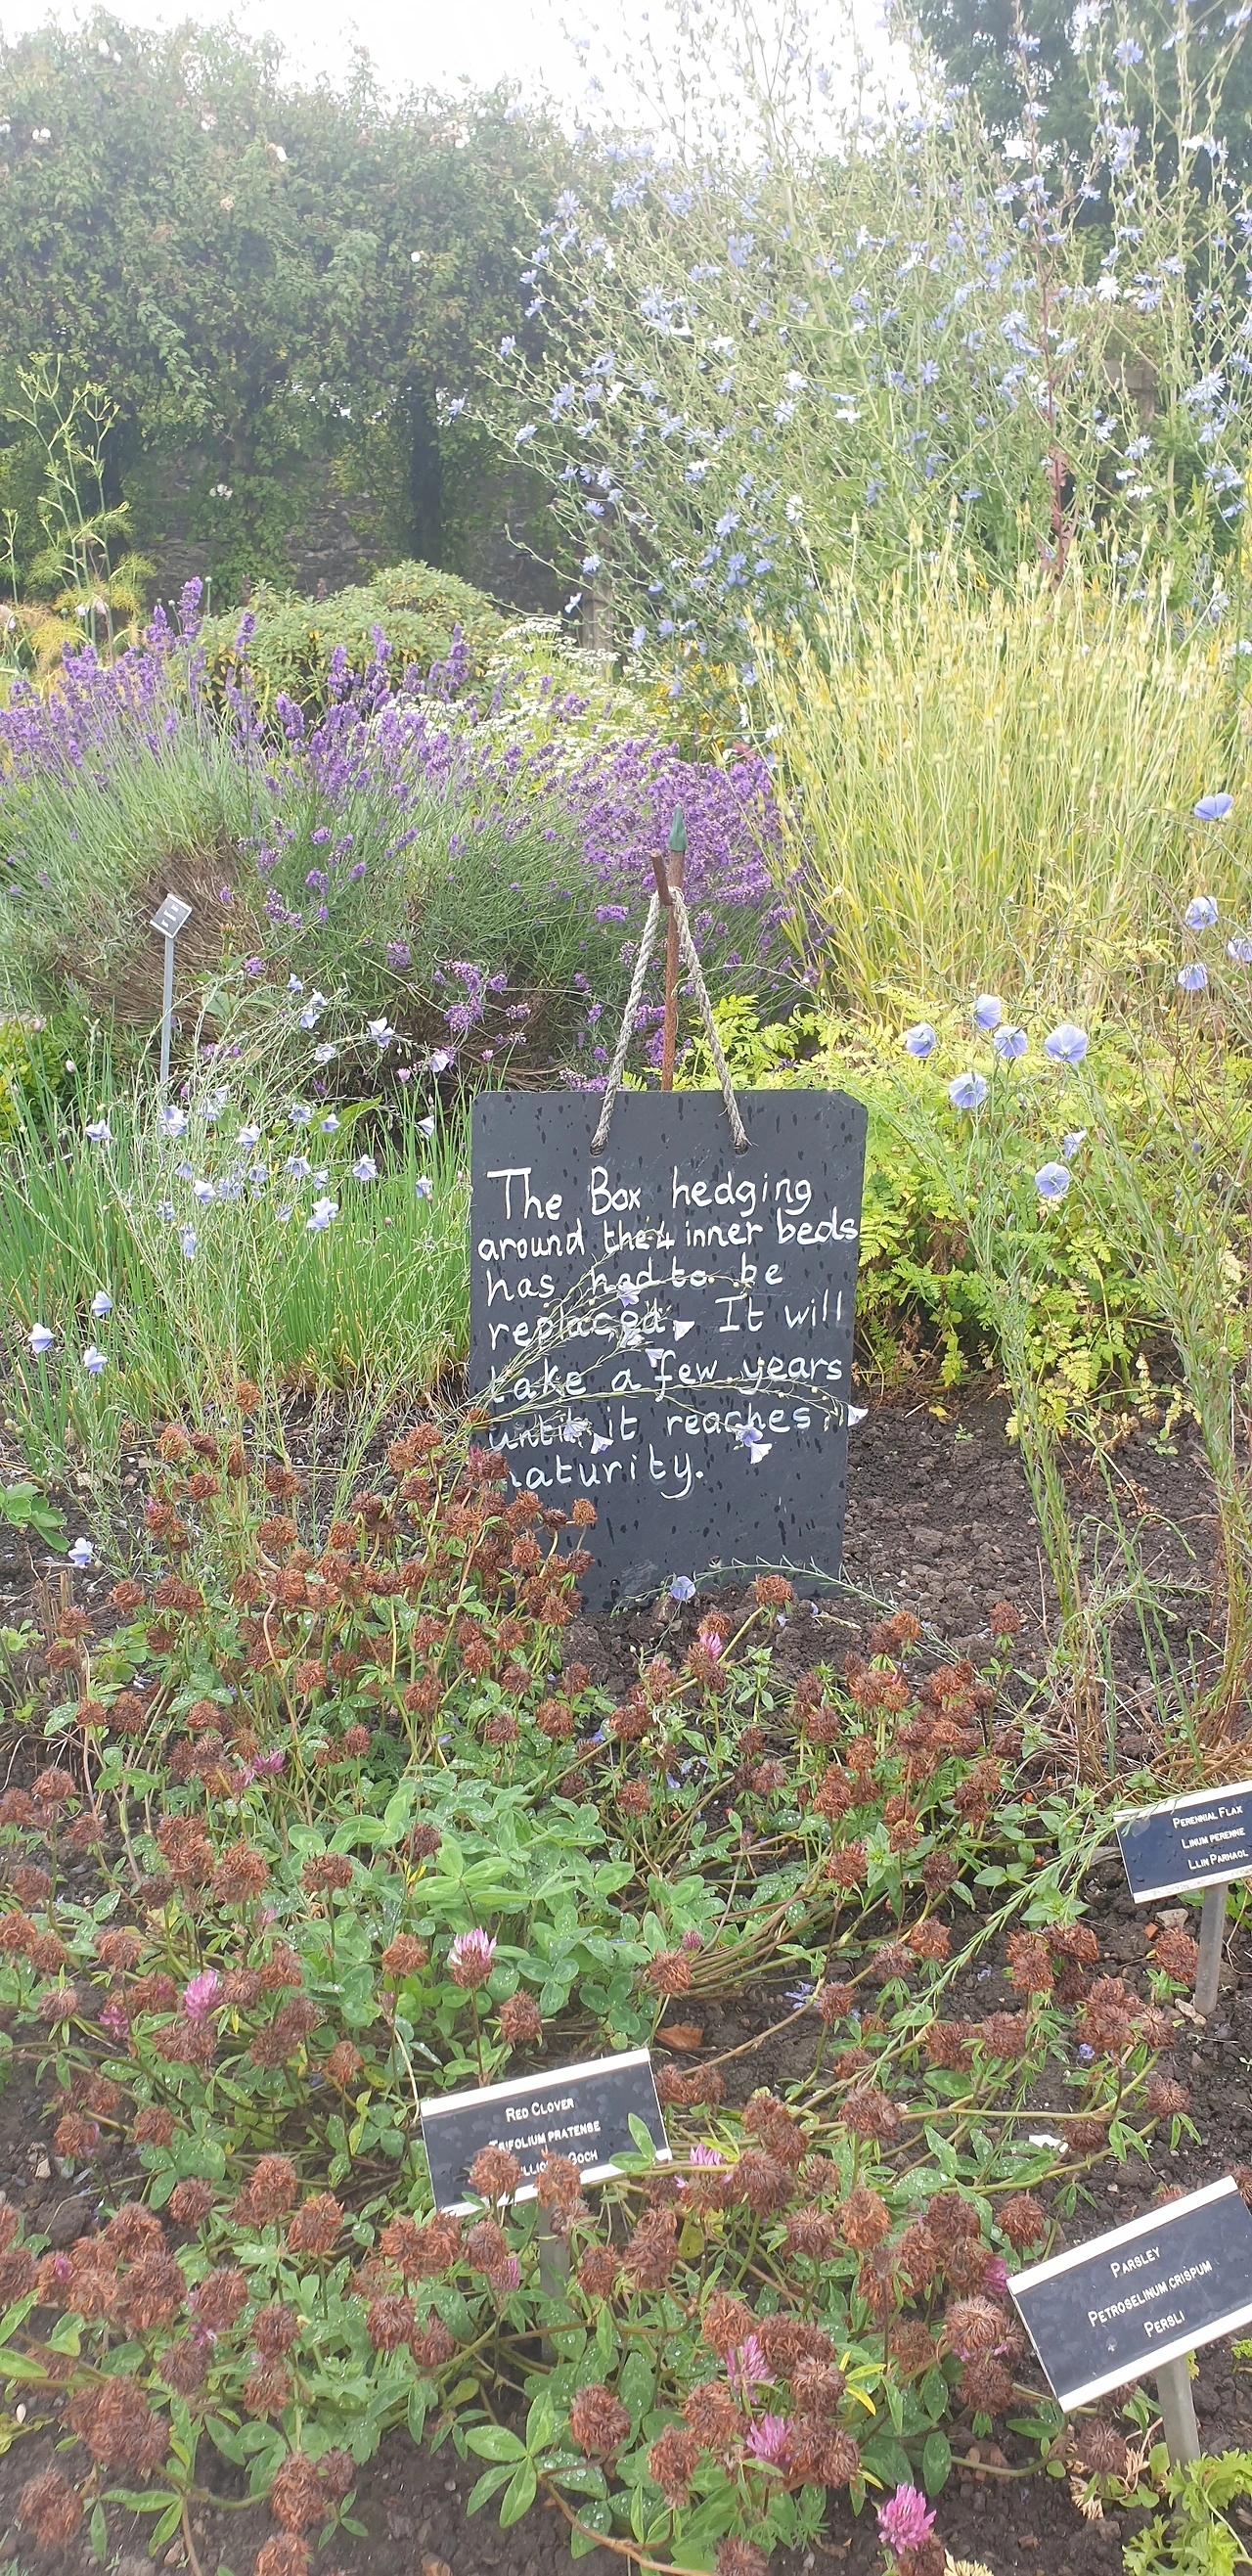 The Box hedging
around the 4 inner beds
has had to be
replaced. It will
take a few years
until it reaches
maturity.
PERENNIAL FLAX
LINUM PERENNE
LLIN PARHAOL
RED CLOVER
TRIFOLIUM PRATENSE
GOCH
PARSLEY
PETROSELINUM CRISPUM
PERSLI